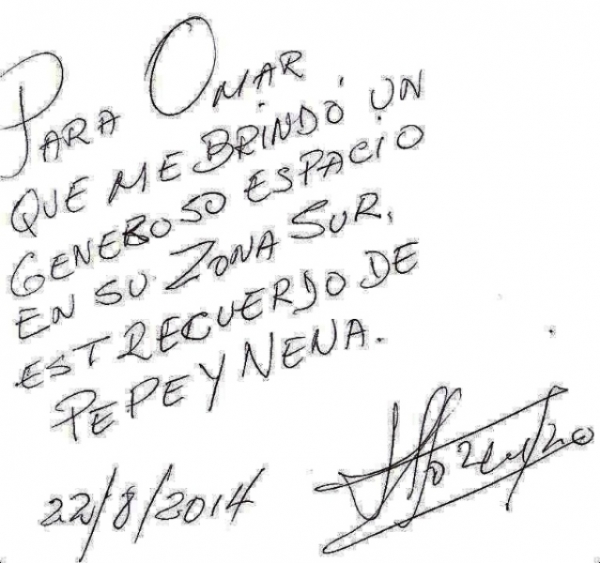 PARA OMAR
QUE ME BRINDÓ UN
GENEROSO ESPACIO
EN SU ZONA SUR.
EST RECUERDO DE
PEPE Y NENA.
22/8/2014